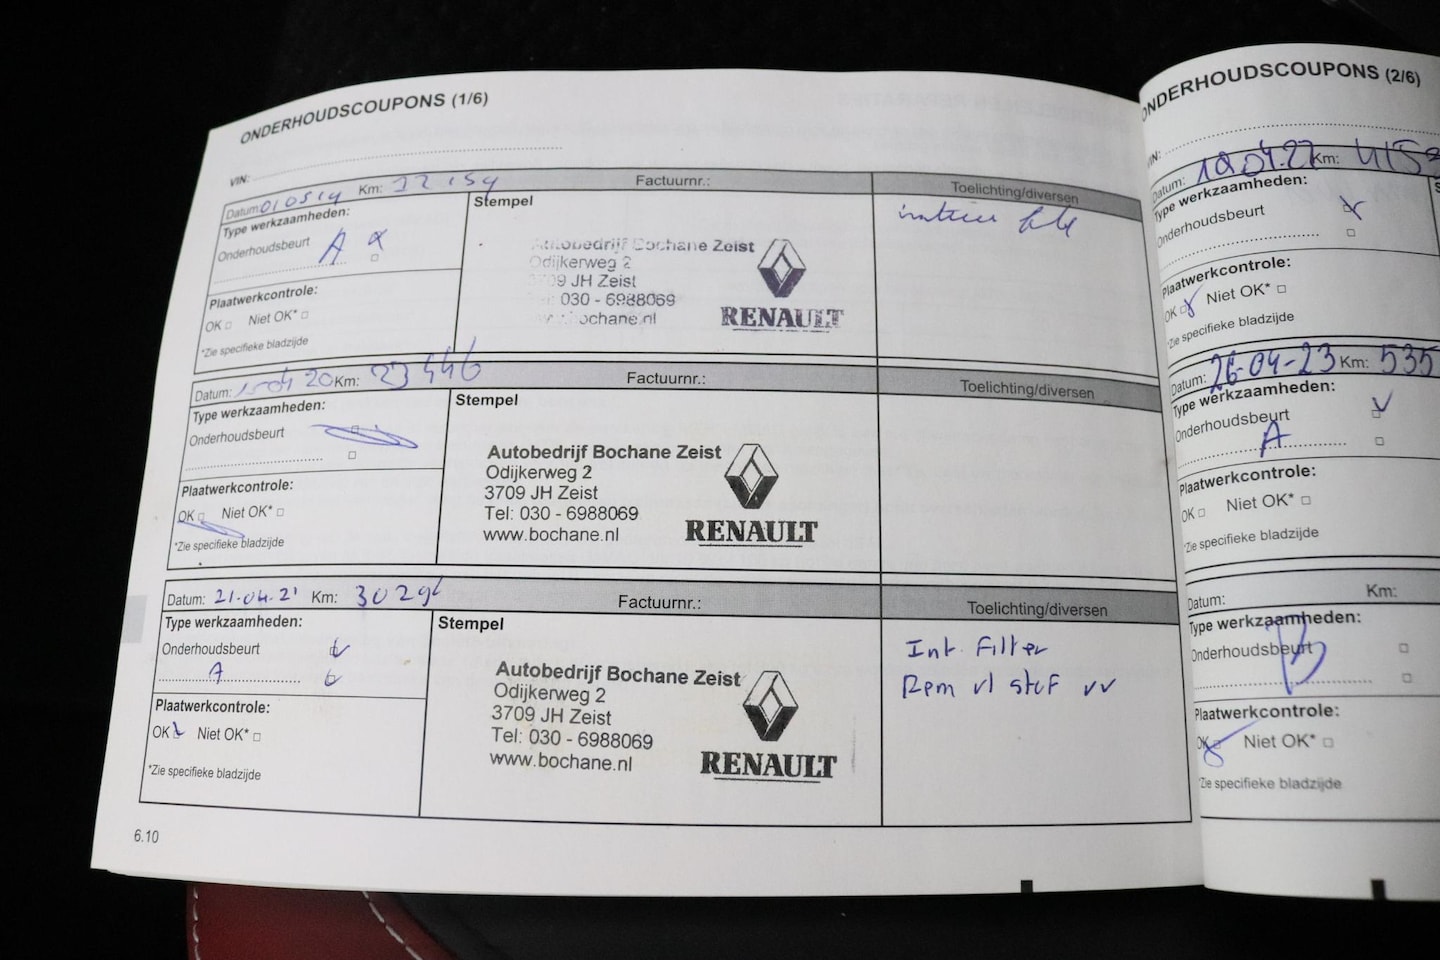 ONDERHOUDSCOUPONS (1/6)
VIN:
Datum: 010519 Km: Factuurnr.: Toelichting/diversen
Type werkzaamheden:
Stempel
Onderhoudsbeurt A
Autobedrijf Bochane Zeist
Odijkerweg 2
3709 JH Zeist
Tel: 030 - 6988069
www.bochane.nl
RENAULT
Plaatwerkcontrole:
OK Niet OK*
*Zie specifieke bladzijde
Datum: 1504 20 Km: 23446 Factuurnr.: Toelichting/diversen
Type werkzaamheden:
Stempel
Onderhoudsbeurt
Autobedrijf Bochane Zeist
Odijkerweg 2
3709 JH Zeist
Tel: 030 - 6988069
www.bochane.nl
RENAULT
Plaatwerkcontrole:
OK Niet OK*
*Zie specifieke bladzijde
Datum: 21-04-21 Km: 30296 Factuurnr.: Toelichting/diversen
Type werkzaamheden:
Stempel
Onderhoudsbeurt
A
Int. Filter
Rem vl stof vv
Autobedrijf Bochane Zeist
Odijkerweg 2
3709 JH Zeist
Tel: 030 - 6988069
www.bochane.nl
RENAULT
Plaatwerkcontrole:
OK Niet OK*
*Zie specifieke bladzijde
6.10
ONDERHOUDSCOUPONS (2/6)
VIN:
Datum: 19.04.22 Km: 415
Type werkzaamheden:
Onderhoudsbeurt
Plaatwerkcontrole:
OK Niet OK*
*Zie specifieke bladzijde
Datum: 26-04-23 Km: 535
Type werkzaamheden:
Onderhoudsbeurt
A
Plaatwerkcontrole:
OK Niet OK*
*Zie specifieke bladzijde
Datum: Km:
Type werkzaamheden:
Onderhoudsbeurt
B
Plaatwerkcontrole:
OK Niet OK*
*Zie specifieke bladzijde